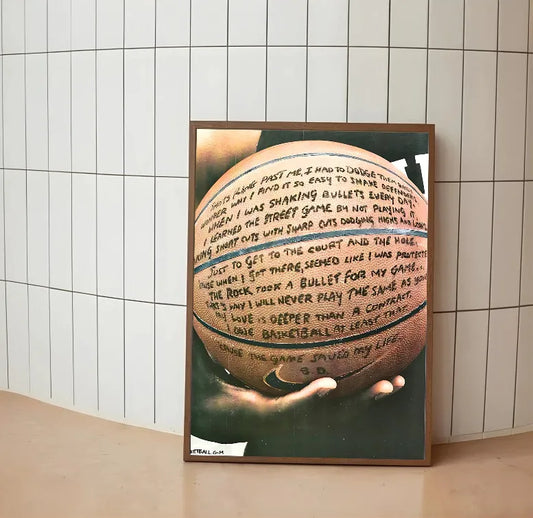 SHOTS FLUNG PAST ME, I HAD TO DODGE THEM DAILY
WONDER WHY I FIND IT SO EASY TO SHAKE DEFENDERS
WHEN I WAS SHAKING BULLETS EVERY DAY.
I LEARNED THE STREET GAME BY NOT PLAYING IT,
KING SHORT CUTS WITH SHARP CUTS DODGING HIGHS AND LOWS
JUST TO GET TO THE COURT AND THE HOLE.
CAUSE WHEN I GOT THERE, SEEMED LIKE I WAS PROTECTE
THE ROCK TOOK A BULLET FOR MY GAME..
THAT'S WHY I WILL NEVER PLAY THE SAME AS YOU
MY LOVE IS DEEPER THAN A CONTRACT.
I OWE BASKETBALL AT LEAST THAT
'CAUSE THE GAME SAVED MY LIFE.
S.D.
KETBALL G-M